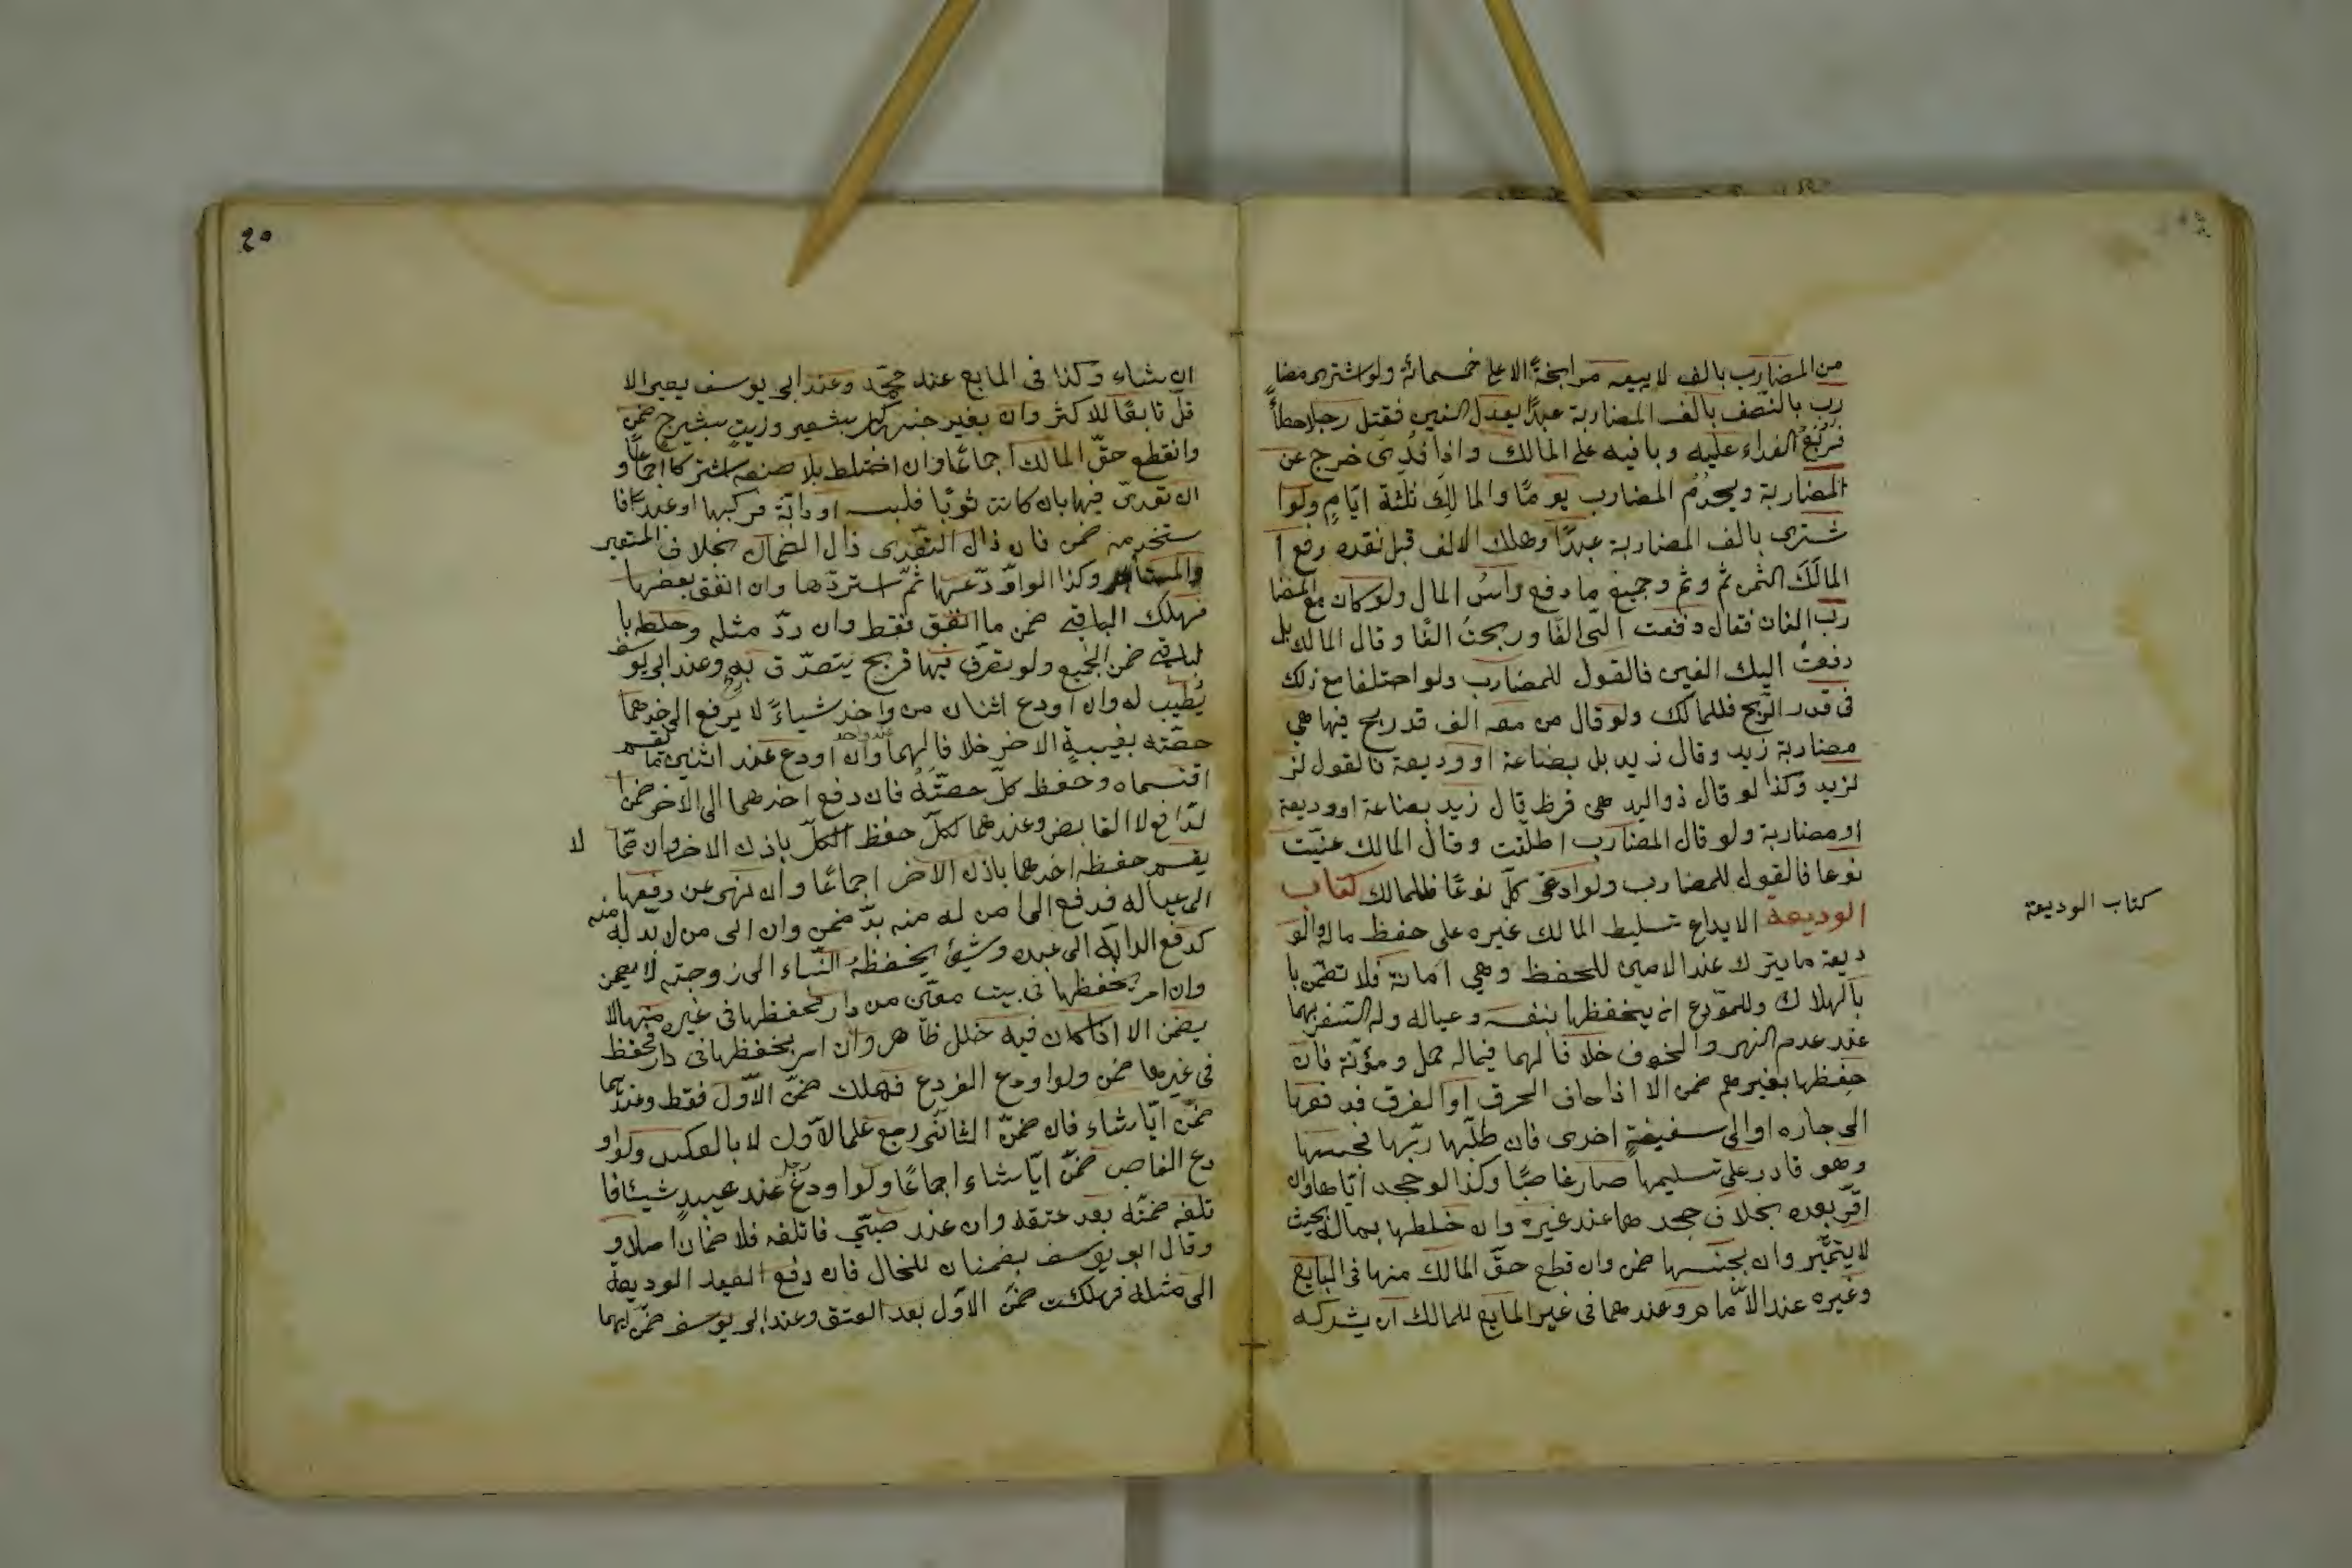 من المضارب بالف لا يبيعه مرابحةً الا على خمسمائة ولو اشترى مضا
رب بالنّصف بالف المضاربة عبدًا يعدل الفين فقتل رجلا خطأً
فربع الفداء عليه وباقيه على المالك واذا فُدِىَ خرج عن
المضاربة ويخدُمُ المضارب يومًا والمالك ثلثة ايّامٍ ولوا
شترى بالف المضاربة عبدًا وهلك الالف قبل نقده دفع ا
المالك الثمن ثم وثم وجميع ما دفع رأسُ المال ولو كان مع المضا
رب الفان فقال دفعت الىّ الفًا وربحتُ الفًا وقال المالك بل
دفعتُ اليك الفين فالقول للمضارب ولو اختلفا مع ذلك
فى قدر الرّبح فللمالك ولو قال من معه الف قد ربح فيها هى
مضاربة زيد وقال زيد بل بضاعة او وديعة فالقول لز
لزيد وكذا لو قال ذواليد هى قرض قال زيد بضاعة او وديعة
او مضاربة ولو قال المضارب اطلقت وقال المالك عنيّت
نوعا فالقول للمضارب ولو ادعى كلّ نوعًا فللمالك كتاب
الوديعة الايداع تسليط المالك غيره على حفظ ماله والو
ديعة ما يترك عند الامين للحفظ وهي امانة فلا تضمن با
بالهلاك وللمودع ان يحفظها بنفسه وعياله وله السّفر بهما
عند عدم النهى والخوف خلافا لهما فيما له حمل ومؤنة فان
حفظها بغيرهم ضمن الا اذا خاف الحرق او الغرق فدفعها
الى جاره او الى سفينةٍ اخرى فان طلبها ربّها فحبسها
وهو قادر على تسليمها صار غاصبًا وكذا لو جحد ايّاها وان
اقرّ بعده بخلاف جحدهما عند غيره وان خلطها بماله بحيث
لا يتميّز وان بجنسها ضمن وان قطع حقّ المالك منها فى المايع
وغيره عند الامام وعندهما فى غير المايع للمالك ان يشركه
كتاب الوديعة
ان شاء وكذا فى المايع عند محمّد وعند ابى يوسف يصير الا
قلّ تابعًا للاكثر وان بغير جنسه كبر بشعير وزيتٍ بشيرج ضمن
وانقطع حقّ المالك اجماعًا وان اختلط بلا صنعه اشتركا اجماعًا و
ان تعدىّ فيها بان كانت ثوبًا فلبسه او دابّة فركبها او عبدًا فا
ستخدمه ضمن فان زال التعّدى زال الضمان بخلاف المستعير
والمستأجر وكذا لو اودعها ثمّ استردّها وان انفق بعضها
فهلك الباقى ضمن ما انفق فقط وان ردّ مثله وخلطه با
لباقى ضمن الجميع ولو تصرّف فيها فربح يتصدّق به وعند ابى يوسف
يُطيب له وان اودع اثنان من واحد شياءً لا يدفع الى احدهما
حصّته بغيبة الاخر خلافا لهما وان اودع عند اثنين ممّا يقسم
اقتسماه وحفظ كلّ حصّتَهُ فان دفع احدهما الى الاخر ضمن ا
لدّافع لا القابض وعندهما لكلّ حفظ الكلّ باذن الاخر وان ممّا لا
يقسم حفظه احدهما باذن الاخر اجماعًا وان نهى عن دفعها
الى عياله فدفع الى من له منه بدّ ضمن وان الى من لا بدّ له منه
كدفع الدابّة الى عبده وشيئ يحفظهُ النّساء الى زوجته لا يضمن
وان امر بحفظها فى بيت معيّن من دار فحفظها فى غيره منها لا
يضمن الا اذا كان فيه خلل ظاهر وان امر بحفظها فى دار فحفظ
فى غيرها ضمن ولو اودع المودع فهلك ضمّن الاوّل فقط وعندهما
ضمّن ايّا شاء فان ضمّن الثانى رجع على الاول لا بالعكس ولو او
دع الغاصب ضمّن ايّا شاء اجماعًا ولو اودع رجل عند عبيدٍ شيئا فا
تلفه ضمنّه بعد عتقه وان عند صبّي فاتلفه فلا ضمان اصلا و
وقال ابو يوسف يضمنان للحال فان دفع العبد الوديعة
الى مثله فهلكت ضمّن الاوّل بعد العتق وعند ابى يوسف ضمّن ايهما